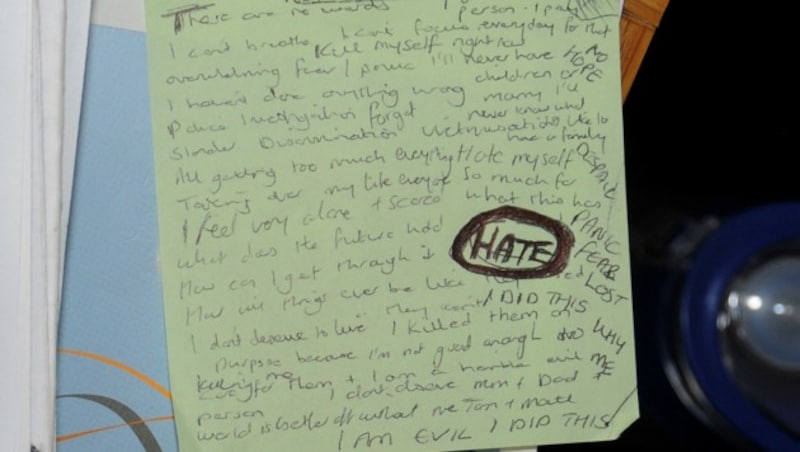 There are no words
I cant breathe I cant focus everyday for that
Kill myself right now
overwhelming fear / panic I'll never have NO HOPE
I haven't done anything wrong children or marry I'll
Police Investigation forget never know what
Slander Discrimination Victimisation like to have a family
All getting too much everything Hate myself DESPAIR
Taking over my life everyone So much for
I feel very alone + scared what this has
what does the future hold PANIC
HATE FEAR
How can I get through it LOST
How will things ever be like they
I DID THIS
I don't deserve to live I killed them on WHY
purpose because I'm not good enough to ME
care for them + I am a horrible evil
person I dont deserve Mum + Dad +
world is better off without me
I AM EVIL I DID THIS